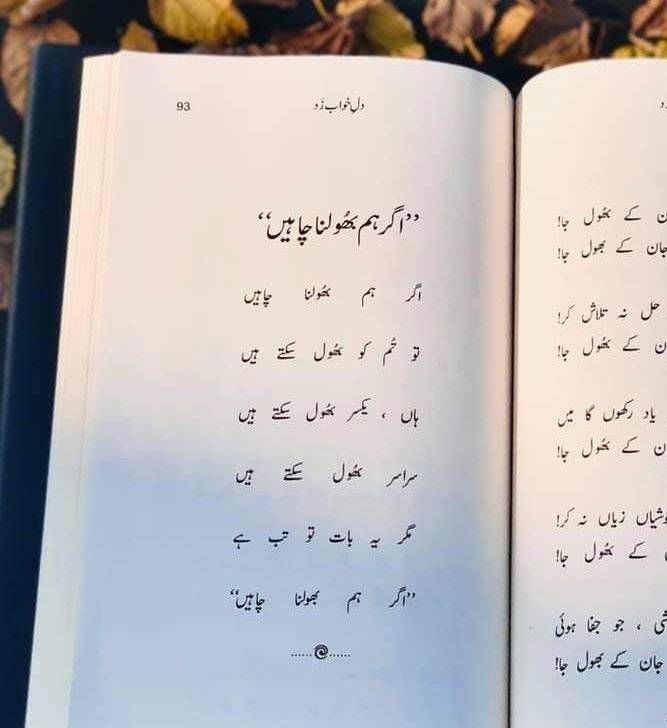 دلِ خواب زَد
93
’’اگر ہم بھُولنا چاہیں‘‘
اگر ہم بھُولنا چاہیں
تو تُم کو بھُول سکتے ہیں
ہاں ، یکسر بھُول سکتے ہیں
سراسر بھُول سکتے ہیں
مگر یہ بات تو تب ہے
’’اگر ہم بھولنا چاہیں‘‘
کے بھُول جا!
جان کے بھول جا!
حل نہ تلاش کر!
کے بھُول جا!
یاد رکھوں گا میں
کے بھُول جا!
زیاں نہ کر!
کے بھُول جا!
، جو جفا ہوئی
جان کے بھول جا!